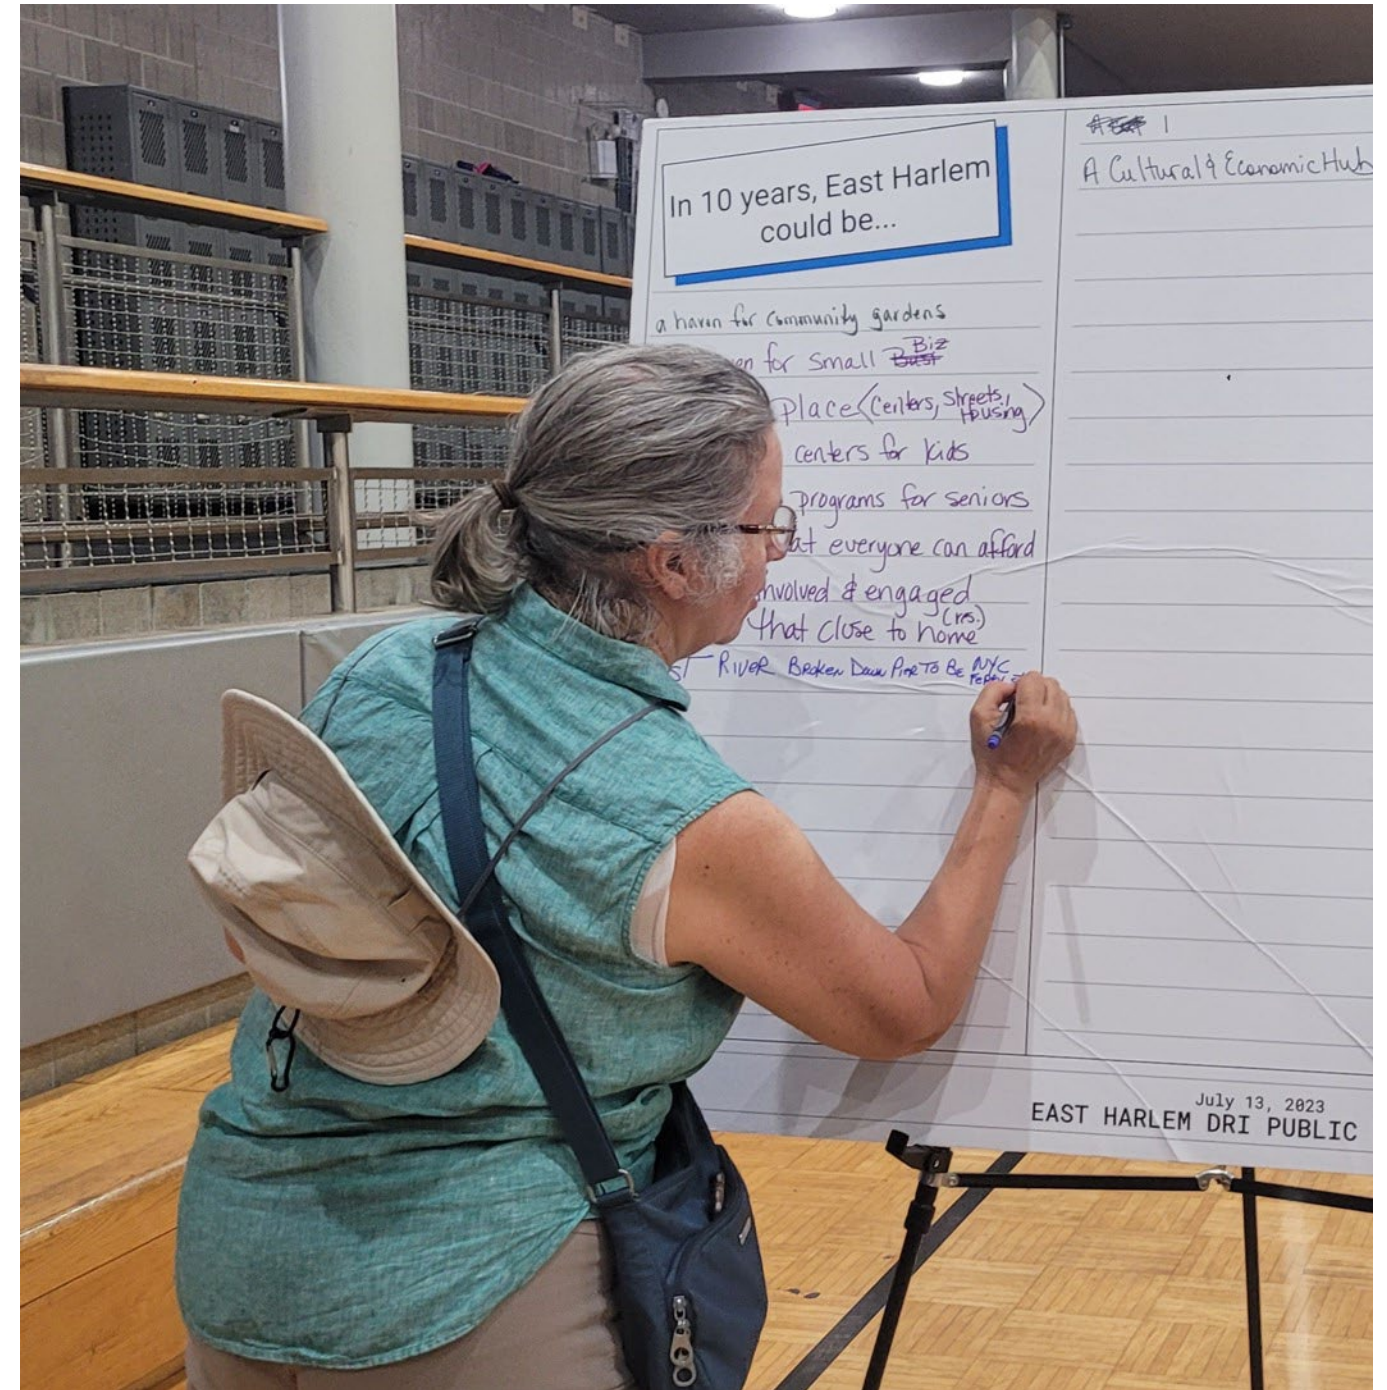 In 10 years, East Harlem
could be...
a haven for community gardens
for small Biz
place (Centers, Streets,
Housing)
centers for kids
programs for seniors
everyone can afford
involved & engaged
(res.)
that close to home
RIVER BROKEN DOWN PIER TO BE NYC
1
A Cultural & Economic Hub
July 13, 2023
EAST HARLEM DRI PUBLIC